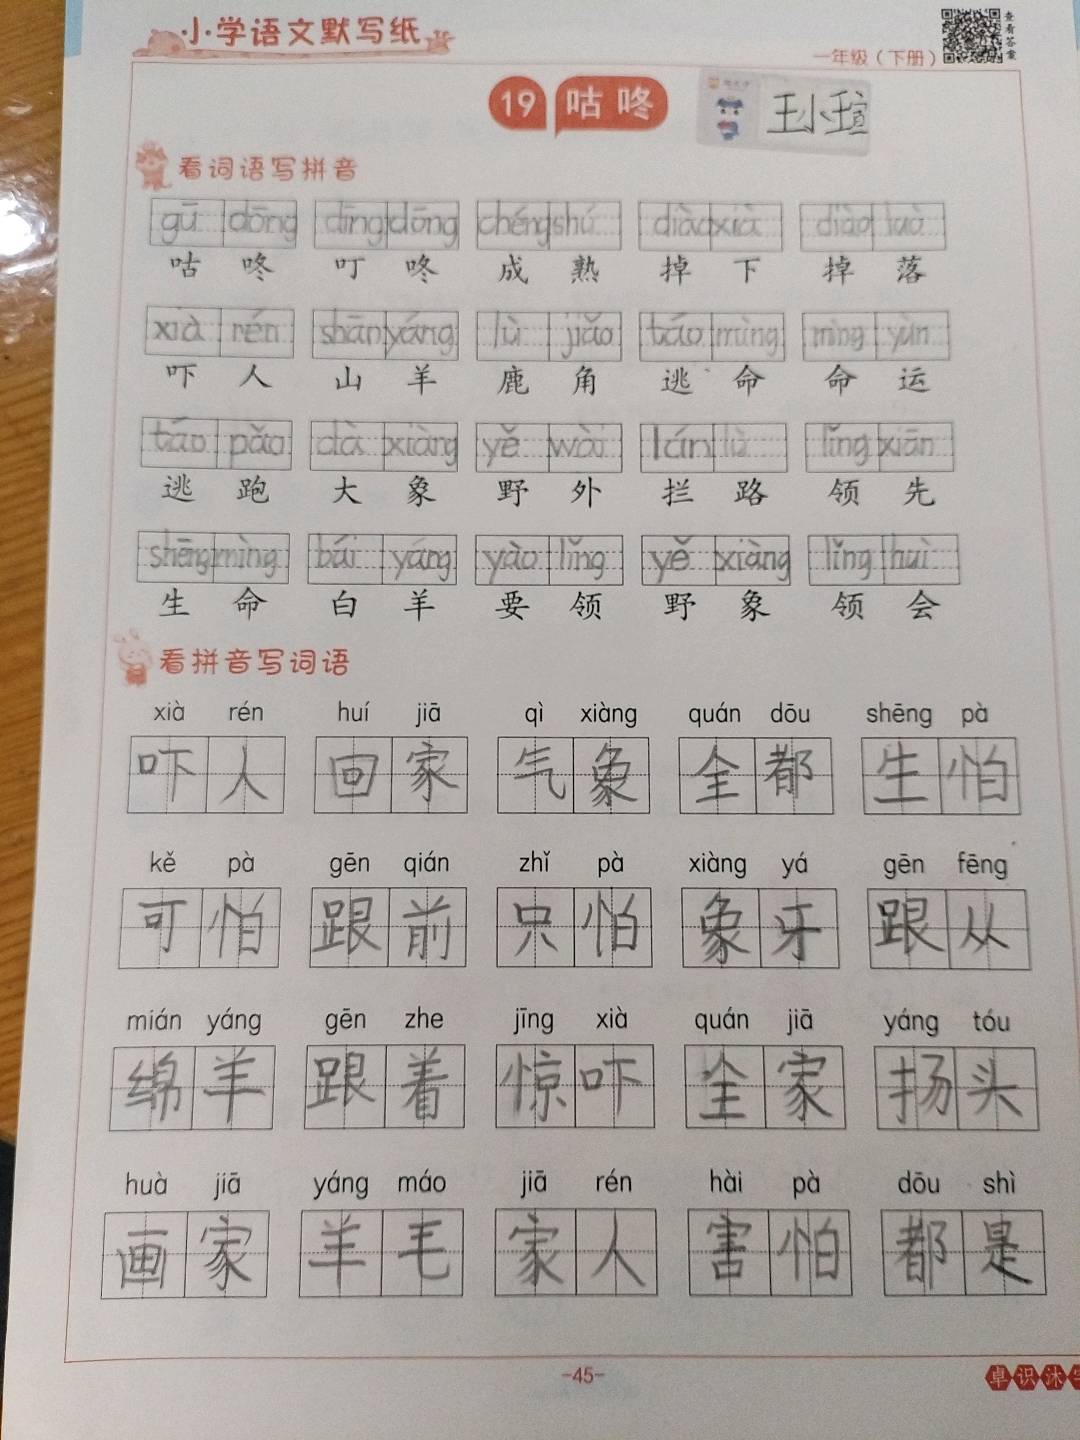 小学语文默写纸
查看答案
一年级(下册)
19 咕咚
王小瑄
看词语写拼音
gū dōng dīng dōng chéng shú diào xià diào luò
咕咚 叮咚 成熟 掉下 掉落
xià rén shān yáng lù jiǎo táo mìng mìng yùn
吓人 山羊 鹿角 逃命 命运
táo pǎo dà xiàng yě wài lán lù lǐng xiān
逃跑 大象 野外 拦路 领先
shēng mìng bái yáng yào lǐng yě xiàng lǐng huì
生命 白羊 要领 野象 领会
看拼音写词语
xià rén huí jiā qì xiàng quán dōu shēng pà
吓人 回家 气象 全都 生怕
kě pà gēn qián zhǐ pà xiàng yá gēn fēng
可怕 跟前 只怕 象牙 跟从
mián yáng gēn zhe jīng xià quán jiā yáng tóu
绵羊 跟着 惊吓 全家 扬头
huà jiā yáng máo jiā rén hài pà dōu shì
画家 羊毛 家人 害怕 都是
-45-
卓识沐